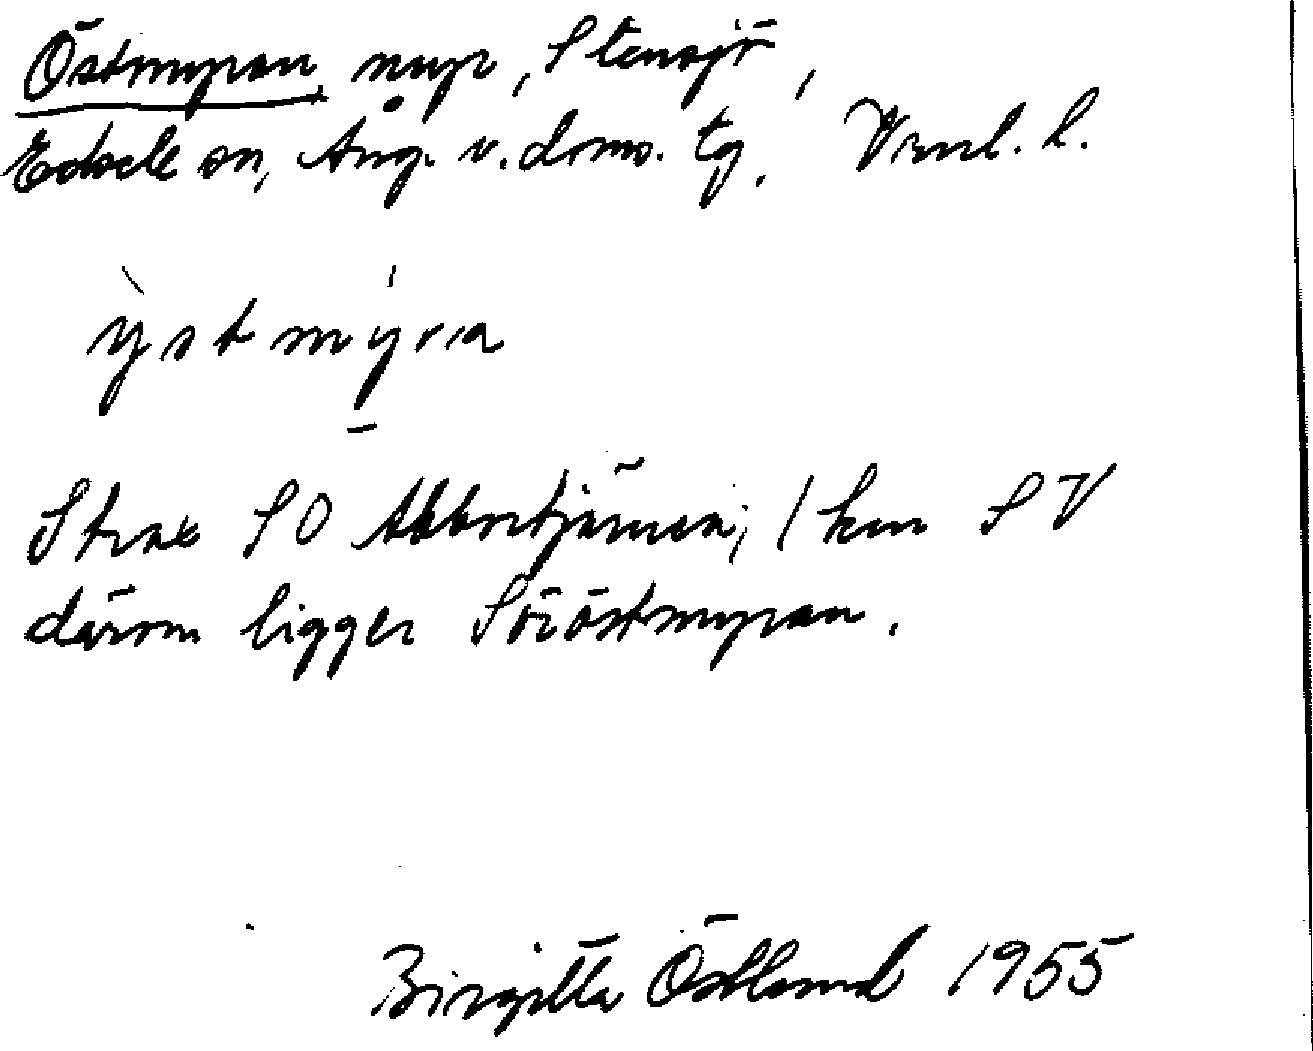 Östmyran, myr, Stensjö,
Edsele sn, Ång. v. doms. tg. Vrnl. l.
ỳstmýra
Strax SO Abbortjärnen; 1 km SV
därom ligger Söröstmyran.
Birgitta Östlund 1955